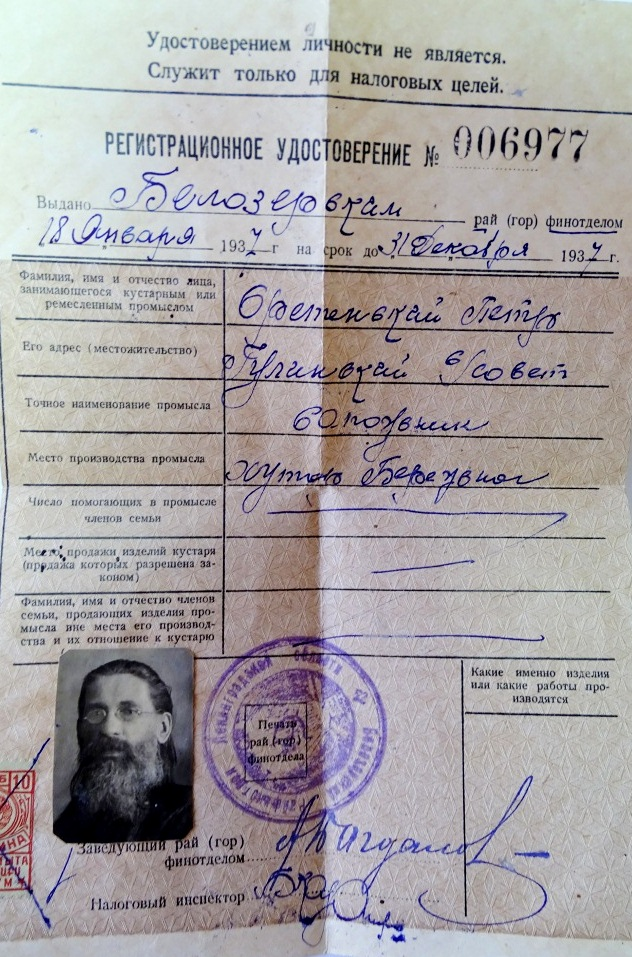 Удостоверением личности не является.
Служит только для налоговых целей.
РЕГИСТРАЦИОННОЕ УДОСТОВЕРЕНИЕ № 006977
Выдано Белозерским рай (гор) финотделом
18 Января 1937 г на срок до 31 Декабря 1937 г.
Фамилия, имя и отчество лица,
занимающегося кустарным или
ремесленным промыслом
Сретенский Петр
Его адрес (местожительство)
с/совет
Точное наименование промысла
сапожник
Место производства промысла
хутор
Число помогающих в промысле
членов семьи
Место продажи изделий кустаря
(продажа которых разрешена за-
коном)
Фамилия, имя и отчество членов
семьи, продающих изделия про-
мысла вне места его производ-
ства и их отношение к кустарю
Какие именно изделия
или какие работы про-
изводятся
Ленинградская область
Печать
рай (гор)
финотдела
10
Заведующий рай (гор)
финотделом
Налоговый инспектор